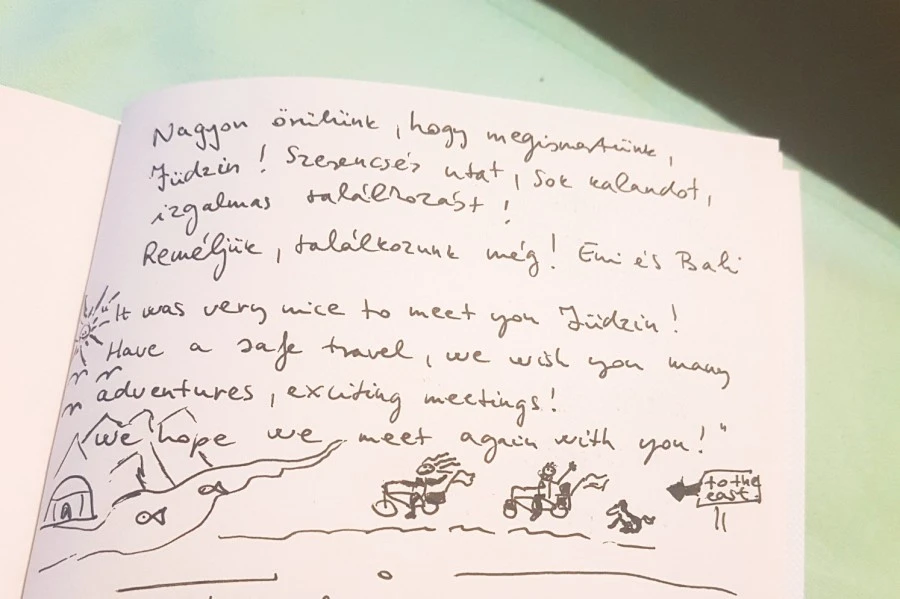 Nagyon örülünk, hogy megismertünk,
Jüdzin! Szerencsés utat, Sok kalandot,
izgalmas találkozást!
Reméljük, találkozunk még! Emi és Bali
It was very nice to meet you Jüdzin!
Have a safe travel, we wish you many
adventures, exciting meetings!
"We hope we meet again with you!"
to the
east